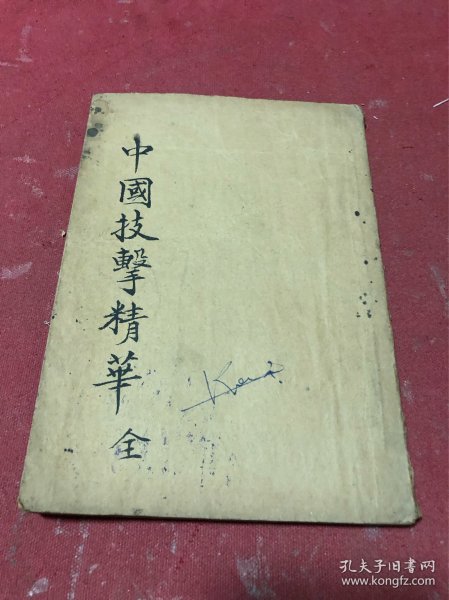 中國技擊精華 全
孔夫子旧书网
www.kongfz.com